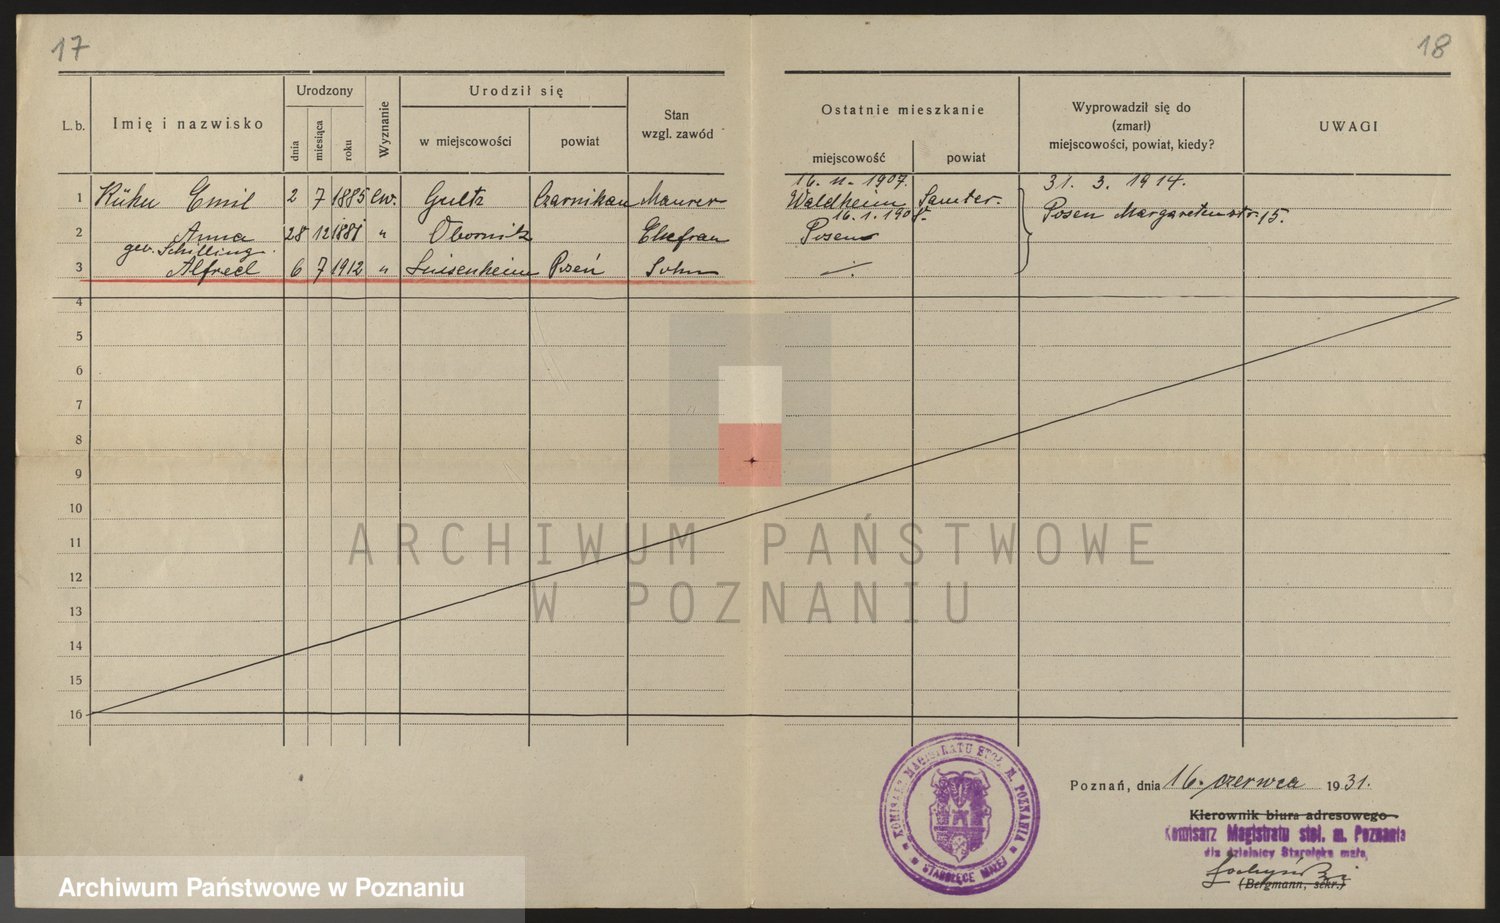 17
18
L. b.
Imię i nazwisko
Urodzony
dnia
miesiąca
roku
Wyznanie
Urodził się
w miejscowości
powiat
Stan
wzgl. zawód
Ostatnie mieszkanie
miejscowość
powiat
Wyprowadził się do
(zmarł)
miejscowości, powiat, kiedy?
UWAGI
16. 11. 1907.
31. 3. 1914.
1 Kühn Emil 2 7 1885 ew. Gultz Czarnikau Maurer Waldheim Samter.
Posen Margaretenstr. 15.
16. 1. 1908.
2 Anna 28 12 1881 " Obornik Ehefrau Posen
geb. Schilling.
3 Alfred 6 7 1912 " Luisenheim Posen Sohn
4
5
6
7
8
9
10
11
12
13
14
15
16
ARCHIWUM PAŃSTWOWE
W POZNANIU
KOMISARZ MAGISTRATU STOŁ. M. POZNANIA
STAROŁĘCE MAŁEJ
Poznań, dnia 16. czerwca 1931.
Kierownik biura adresowego
Komisarz Magistratu stoł. m. Poznania
dla dzielnicy Starołęka mała,
(Bergmann, sekr.)
Archiwum Państwowe w Poznaniu